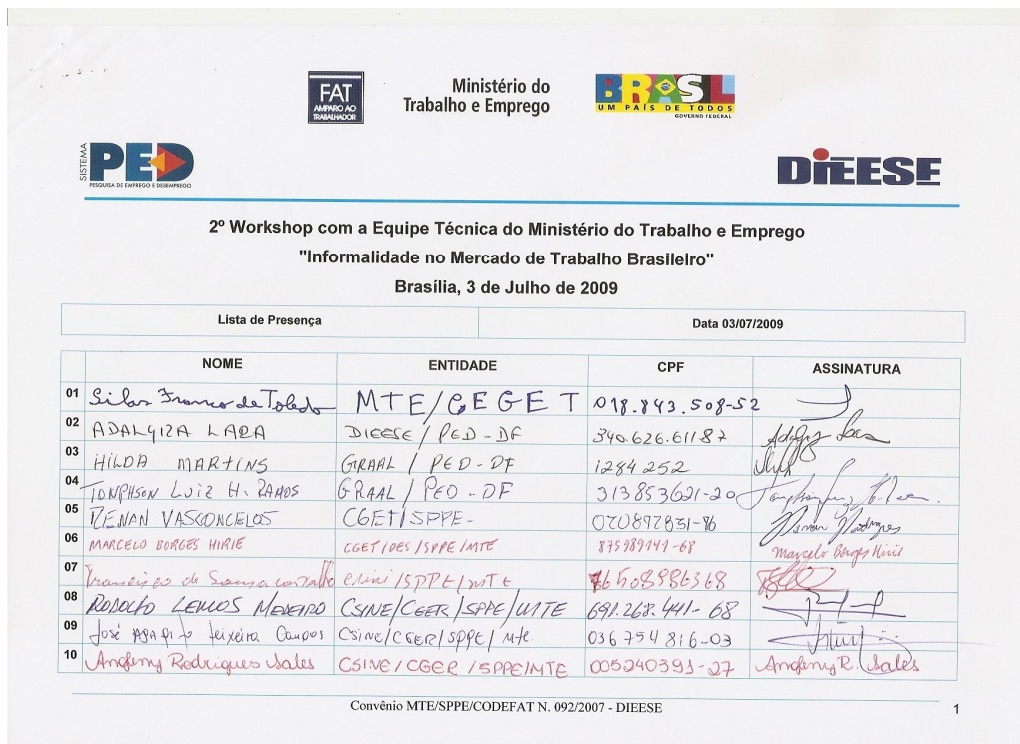 FAT
AMPARO AO
TRABALHADOR
Ministério do
Trabalho e Emprego
BRASIL
UM PAÍS DE TODOS
GOVERNO FEDERAL
SISTEMA PED
PESQUISA DE EMPREGO E DESEMPREGO
DIEESE
2º Workshop com a Equipe Técnica do Ministério do Trabalho e Emprego
"Informalidade no Mercado de Trabalho Brasileiro"
Brasília, 3 de Julho de 2009
Lista de Presença Data 03/07/2009
NOME ENTIDADE CPF ASSINATURA
01 Silas Franco de Toledo MTE/CEGET 018.843.508-52
02 ADALGIZA LARA DIEESE / PED-DF 340.626.611 87
03 HILDA MARTINS GRAAL / PED-DF 1284252
04 TONPHSON LUIZ H. RAMOS GRAAL / PED-DF 313853621-20
05 RENAN VASCONCELOS CGET/SPPE-
06 MARCELO BORGES HIRIE CGET/DES/SPPE/MTE 875989141-68 Marcelo Borges Hirie
07 Francisco de Sousa /SPPE/MTE 76508986368
08 RODOLFO LEMOS MEDEIRO CSINE/CGER/SPPE/MTE 691.268.441-68
09 José AGAPITO Teixeira Campos CSINE/CGER/SPPE/Mte. 036754816-03
10 Angferny Rodrigues Sales CSINE/CGER/SPPE/MTE 005240391-27 Angferny R. Sales
Convênio MTE/SPPE/CODEFAT N. 092/2007 - DIEESE 1